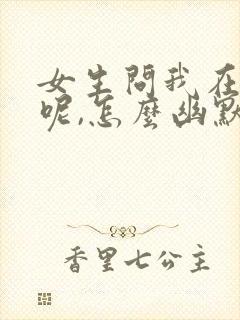 女生問我在
呢,怎麼幽默
香里七公主